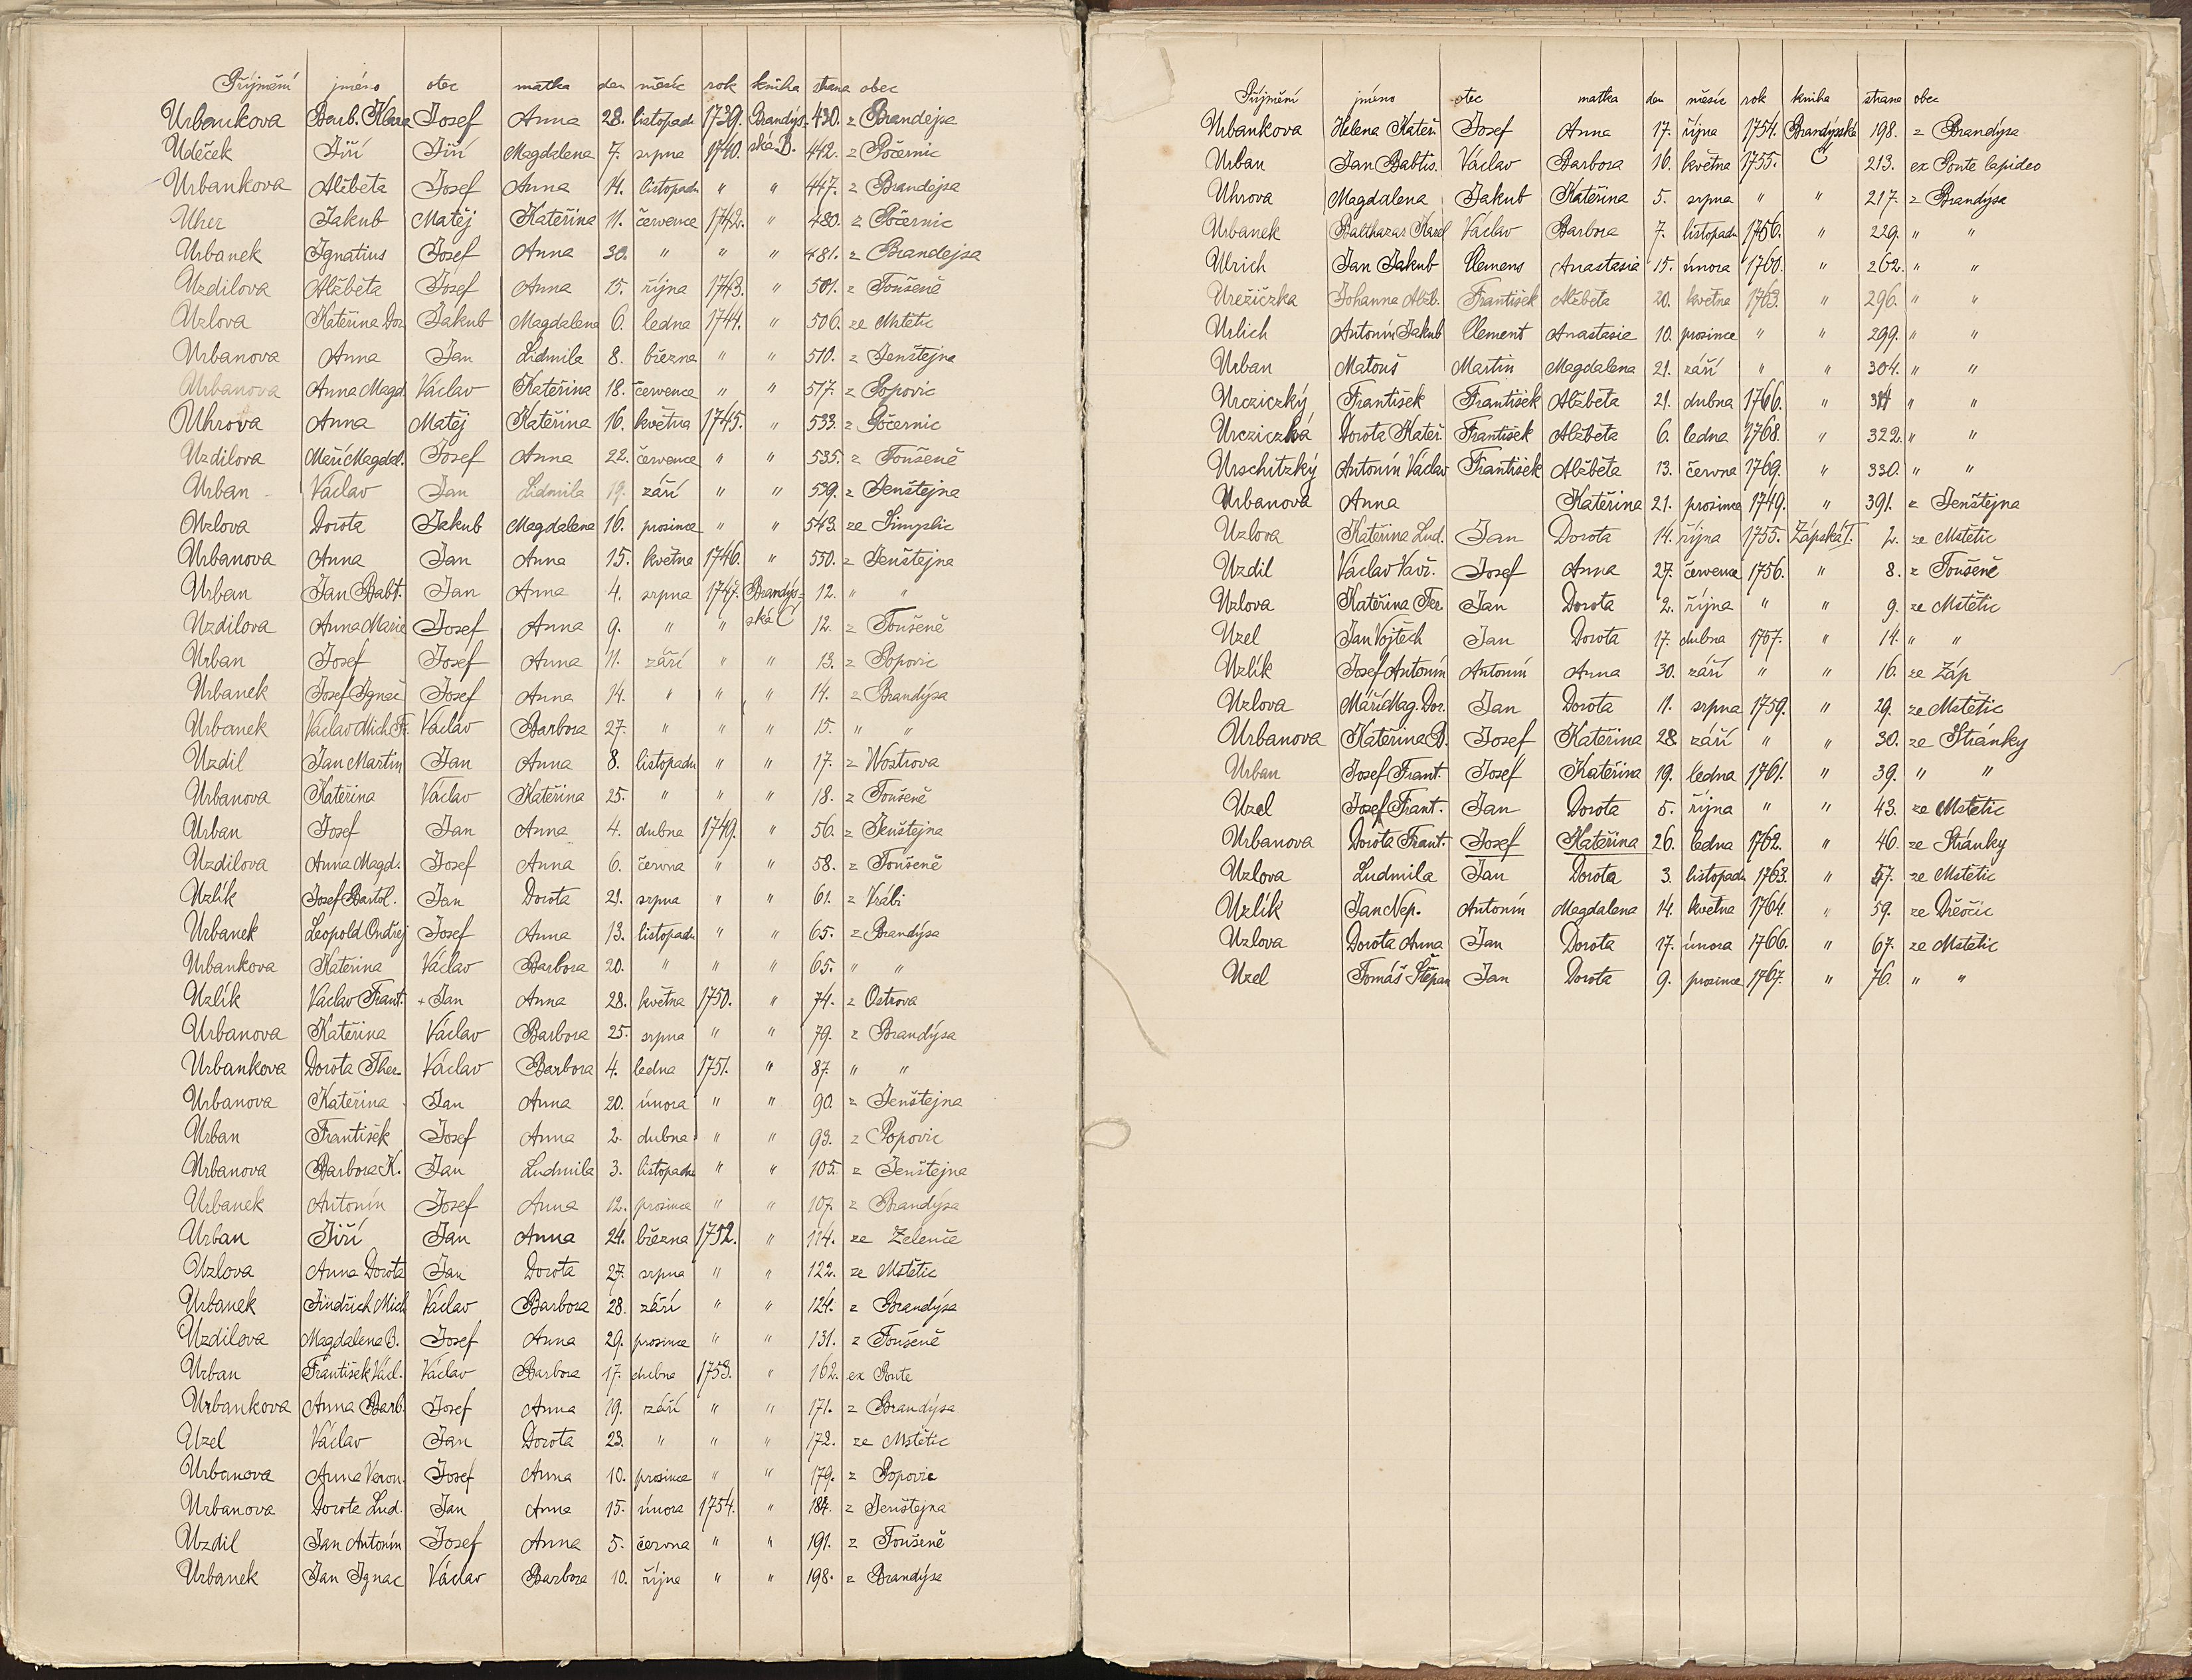 Příjmení jméno otec matka den měsíc rok kniha strana obec
Urbankova Barb. Klara Josef Anna 28. listopadu 1739. Brandýs- 430. z Brandejsa
Uděček Jiří Jiří Magdalena 7. srpna 1740. ská B. 442. z Počernic
Urbankova Alžběta Josef Anna 14. listopadu " " 447. z Brandejsa
Uher Jakub Matěj Kateřina 11. července 1742. " 480. z Počernic
Urbanek Ignatius Josef Anna 30. " " " 481. z Brandejsa
Uzdilova Alžběta Josef Anna 15. října 1743. " 501. z Toušeně
Uzlova Kateřina Dor. Jakub Magdalena 6. ledna 1744. " 506. ze Mstětic
Urbanova Anna Jan Lidmila 8. března " " 510. z Jenštejna
Urbanova Anna Magd. Václav Kateřina 18. července " " 517. z Popovic
Uhrova Anna Matěj Kateřina 16. května 1745. " 533. z Počernic
Uzdilova Maří Magdal. Josef Anna 22. července " " 535. z Toušeně
Urban Václav Jan Lidmila 19. září " " 539. z Jenštejna
Uzlova Dorota Jakub Magdalena 16. prosince " " 543. ze Simplic
Urbanova Anna Jan Anna 15. května 1746. " 550. z Jenštejna
Urban Jan Babt. Jan Anna 4. srpna 1747. Brandýs- 12. " "
Uzdilova Anna Marie Josef Anna 9. " " ská C 12. z Toušeně
Urban Josef Josef Anna 11. září " " 13. z Popovic
Urbanek Josef Ignác Josef Anna 14. " " " 14. z Brandýsa
Urbanek Václav Mich. Fr. Václav Barbora 27. " " " 15. " "
Uzdil Jan Martin Jan Anna 8. listopadu " " 17. z Wostrova
Urbanova Kateřina Václav Kateřina 25. " " " 18. z Toušeně
Urban Josef Jan Anna 4. dubna 1749. " 56. z Jenštejna
Uzdilova Anna Magd. Josef Anna 6. června " " 58. z Toušeně
Uzlík Josef Bartol. Jan Dorota 21. srpna " " 61. z Vrábí
Urbanek Leopold Ondřej Josef Anna 13. listopadu " " 65. z Brandýsa
Urbankova Kateřina Václav Barbora 20. " " " 65. " "
Uzlík Václav Frant. + Jan Anna 28. května 1750. " 74. z Ostrova
Urbanova Kateřina Václav Barbora 25. srpna " " 79. z Brandýsa
Urbankova Dorota Ther. Václav Barbora 4. ledna 1751. " 87. " "
Urbanova Kateřina Jan Anna 20. února " " 90. z Jenštejna
Urban František Josef Anna 2. dubna " " 93. z Popovic
Urbanova Barbora K. Jan Ludmila 3. listopadu " " 105. z Jenštejna
Urbanek Antonín Josef Anna 12. prosince " " 107. z Brandýsa
Urban Jiří Jan Anna 24. března 1752. " 114. ze Zelenče
Uzlova Anna Dorota Jan Dorota 27. srpna " " 122. ze Mstětic
Urbanek Jindřich Mich Václav Barbora 28. září " " 124. z Brandýsa
Uzdilova Magdalena B. Josef Anna 29. prosince " " 131. z Toušeně
Urban František Václ. Václav Barbora 17. dubna 1753. " 162. ex Ponte
Urbankova Anna Barb. Josef Anna 19. září " " 171. z Brandýsa
Uzel Václav Jan Dorota 23. " " " 172. ze Mstětic
Urbanova Anna Veron. Josef Anna 10. prosince " " 179. z Popovic
Urbanova Dorota Lud. Jan Anna 15. února 1754. " 184. z Jenštejna
Uzdil Jan Antonín Josef Anna 5. června " " 191. z Toušeně
Urbanek Jan Ignac Václav Barbora 10. října " " 198. z Brandýsa
Příjmení jméno otec matka den měsíc rok kniha strana obec
Urbankova Helena Kateř. Josef Anna 17. října 1754. Brandýská 198. z Brandýsa
Urban Jan Babtis. Václav Barbora 16. května 1755. C 213. ex Ponte lapideo
Uhrova Magdalena Jakub Kateřina 5. srpna " " 217. z Brandýsa
Urbanek Balthazar Karel Václav Barbora 7. listopadu 1756. " 229. " "
Ulrich Jan Jakub Clemens Anastasia 15. února 1760. " 262. " "
Urežiczka Johanna Alžb. František Alžběta 20. května 1763. " 296. " "
Urlich Antonín Jakub Clement Anastasie 10. prosince " " 299. " "
Urban Matouš Martin Magdalena 21. září " " 304. " "
Urcziczký František František Alžběta 21. dubna 1766. " " "
Urcziczká Dorota Kateř. František Alžběta 6. ledna 1768. " 322. " "
Urschitzký Antonín Václav František Alžběta 13. června 1769. " 330. " "
Urbanova Anna Kateřina 21. prosince 1749. " 391. z Jenštejna
Uzlova Kateřina Lud. Jan Dorota 14. října 1755. Zápská I. 2. ze Mstětic
Uzdil Václav Vavř. Josef Anna 27. července 1756. " 8. z Toušeně
Uzlova Kateřina Ter. Jan Dorota 2. října " " 9. ze Mstětic
Uzel Jan Vojtěch Jan Dorota 17. dubna 1757. " 14. " "
Uzlík Josef Antonín Antonín Anna 30. září " " 16. ze Záp
Uzlova Máří Mag. Dor. Jan Dorota 11. srpna 1759. " 29. ze Mstětic
Urbanova Kateřina B. Josef Kateřina 28. září " " 30. ze Stránky
Urban Josef Frant. Josef Kateřina 19. ledna 1761. " 39. " "
Uzel Josef Frant. Jan Dorota 5. října " " 43. ze Mstětic
Urbanova Dorota Frant. Josef Kateřina 26. ledna 1762. " 46. ze Stránky
Uzlova Ludmila Jan Dorota 3. listopadu 1763. " 57. ze Mstětic
Uzlík Jan Nep. Antonín Magdalena 14. května 1764. " 59. ze Dřevčic
Uzlova Dorota Anna Jan Dorota 17. února 1766. " 67. ze Mstětic
Uzel Tomáš Štěpan Jan Dorota 9. prosince 1767. " 76. " "